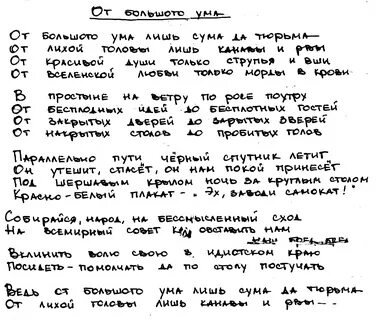 От большого ума
От большого ума лишь сума да тюрьма
От лихой головы лишь канавы и рвы
От красивой души только струпья и вши
От вселенской любви только морды в крови
В простыне на ветру по росе поутру
От бесплодных идей до бесплотных гостей
От закрытых дверей до зарытых зверей
От накрытых столов до пробитых голов
Параллельно пути чёрный спутник летит
Он утешит, спасёт, он нам покой принесёт
Под шершавым крылом ночь за круглым столом
Красно-белый плакат - "Эх, заводи самокат!"
Собирайся, народ, на бессмысленный сход
На всемирный совет как обставить нам
Вклинить волю свою в идиотском краю
Посидеть-помолчать да по столу постучать
Ведь от большого ума лишь сума да тюрьма
От лихой головы лишь канавы и рвы...